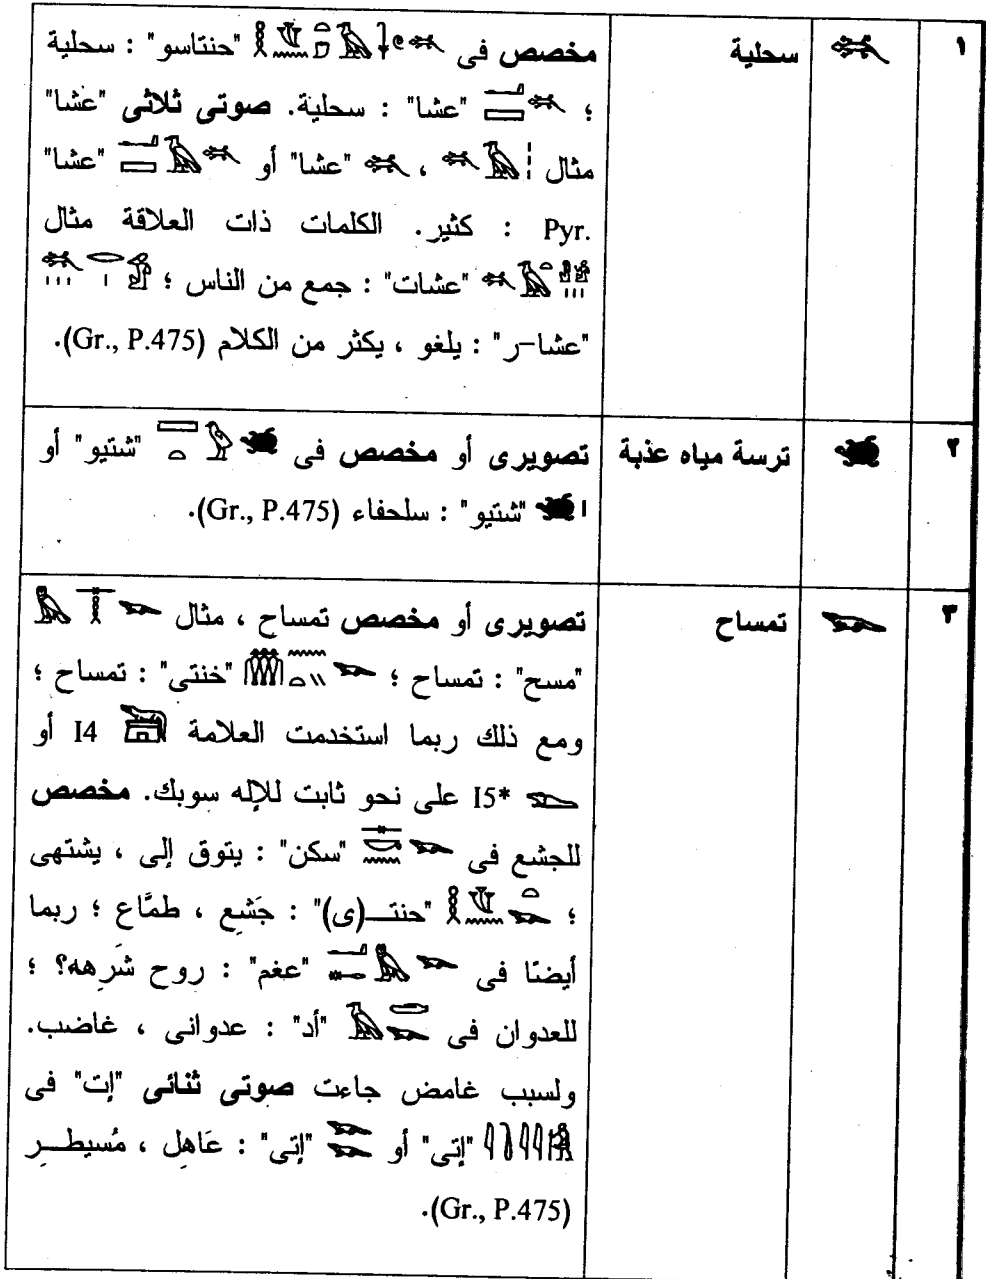 ١ سحلية مخصص فى "حنتاسو" : سحلية
؛ "عشا" : سحلية. صوتى ثلاثى "عشا"
مثال ، "عشا" أو "عشا"
Pyr. : كثير. الكلمات ذات العلاقة مثال
"عشات" : جمع من الناس ؛
"عشا-ر" : يلغو ، يكثر من الكلام (Gr., P.475).
٢ ترسة مياه عذبة تصويرى أو مخصص فى "شتيو" أو
"شتيو" : سلحفاء (Gr., P.475).
٣ تمساح تصويرى أو مخصص تمساح ، مثال
"مسح" : تمساح ؛ "خنتى" : تمساح ؛
ومع ذلك ربما استخدمت العلامة I4 أو
I5* على نحو ثابت للإله سوبك. مخصص
للجشع فى "سكن" : يتوق إلى ، يشتهى
؛ "حنتـــ(ى)" : جَشِع ، طمَّاع ؛ ربما
أيضًا فى "عغم" : روح شَرِهه؟ ؛
للعدوان فى "أد" : عدوانى ، غاضب.
ولسبب غامض جاءت صوتى ثنائى "إت" فى
"إتى" أو "إتى" : عَاهِل ، مُسيطـــِر
(Gr., P.475).